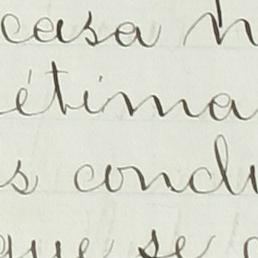 casa
étima
s condu
que se